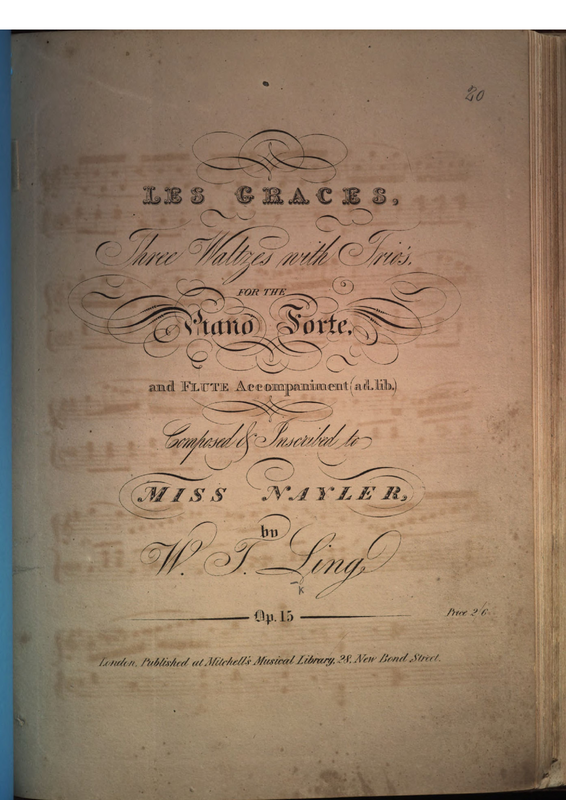 20
LES GRACES,
Three Waltzes with Trio's,
FOR THE
Piano Forte,
and FLUTE Accompaniment (ad. lib.)
Composed & Inscribed to
MISS NAYLER,
by
W. T. Ling
k
Op. 15
Price 2/6
London, Published at Mitchell's Musical Library, 28, New Bond Street.